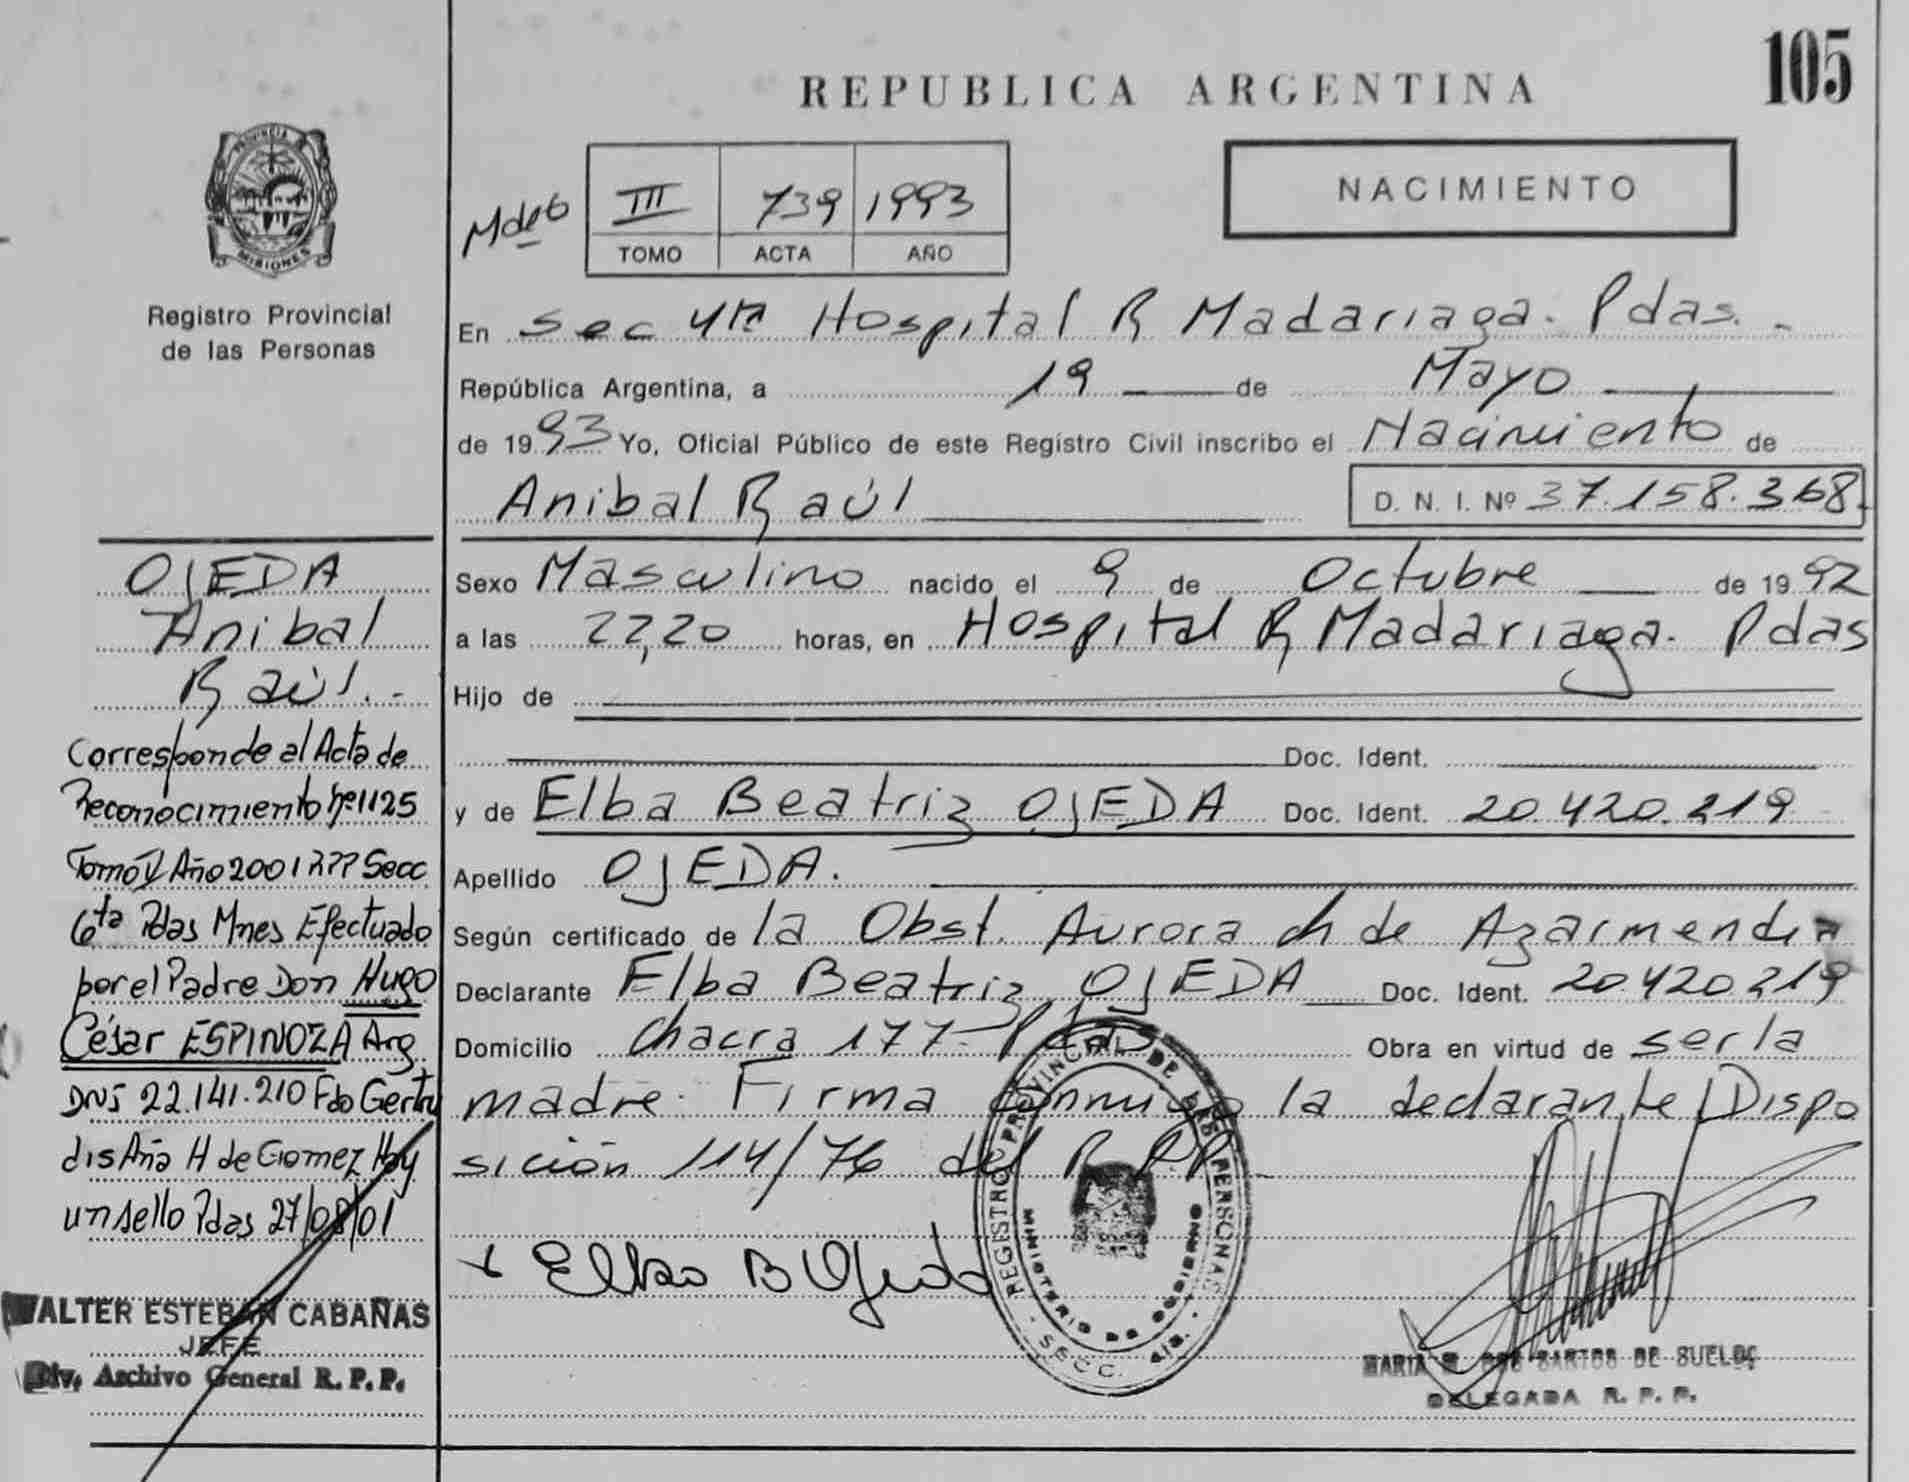 105
REPUBLICA ARGENTINA
PROVINCIA
MISIONES
Registro Provincial
de las Personas
III 739 1993
TOMO ACTA AÑO
NACIMIENTO
En Sec 4ta Hospital R Madariaga. Pdas. -
República Argentina, a 19 de Mayo
de 1993 Yo, Oficial Público de este Registro Civil inscribo el Nacimiento de
Anibal Raúl D. N. I. Nº 37.158.368.
Sexo Masculino nacido el 9 de Octubre de 1992
a las 22,20 horas, en Hospital R Madariaga. Pdas
Hijo de
Doc. Ident.
y de Elba Beatriz OJEDA Doc. Ident. 20.420.219
Apellido OJEDA.
Según certificado de la Obst. Aurora ch de Azarmendia
Declarante Elba Beatriz OJEDA Doc. Ident. 20.420.219
Domicilio Chacra 177- Pdas Obra en virtud de ser la
madre. Firma conmigo la declarante/Dispo
sición 114/76 del R.P.P.
Elba B Ojeda
REGISTRO PROVINCIAL DE LAS PERSONAS
MINISTERIO DE GOBIERNO
SECC. 4ta.
MARIA DOS SANTOS DE SUELDO
DELEGADA R. P. P.
OJEDA
Anibal
Raúl.-
Corresponde al Acta de
Reconocimiento Nº 1125
Tomo Año 2001 Secc
6ta Pdas Mnes Efectuado
por el Padre Don Hugo
César ESPINOZA Arg
DNI 22.141.210 Fdo Gertru
dis Ana H de Gomez Hay
un sello Pdas 27/08/01
WALTER ESTEBAN CABAÑAS
JEFE
Div. Archivo General R. P. P.